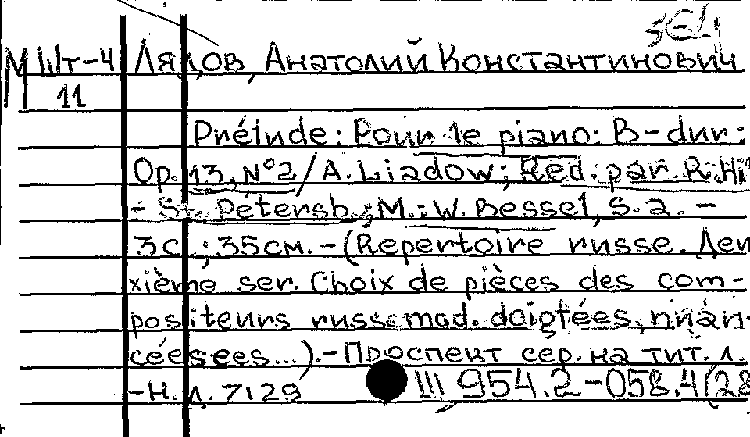 М Шт-4 Лядов, Анатолий Константинович
11
Prélude: Pour le piano: B-dur:
Op. 13, №2 / A. Liadow; Red. par R.
- St. Pétersb.; M.: W. Bessel, S.a. -
3с.; 35см. - (Repertoire russe. Деи
xième ser. Choix de pièces des com-
positeurs russ. mod. doigtées, nuan-
cées ees...). - Проспект сер. на тит. л.
- Н. д. 7129 III 954.2-058.4(28